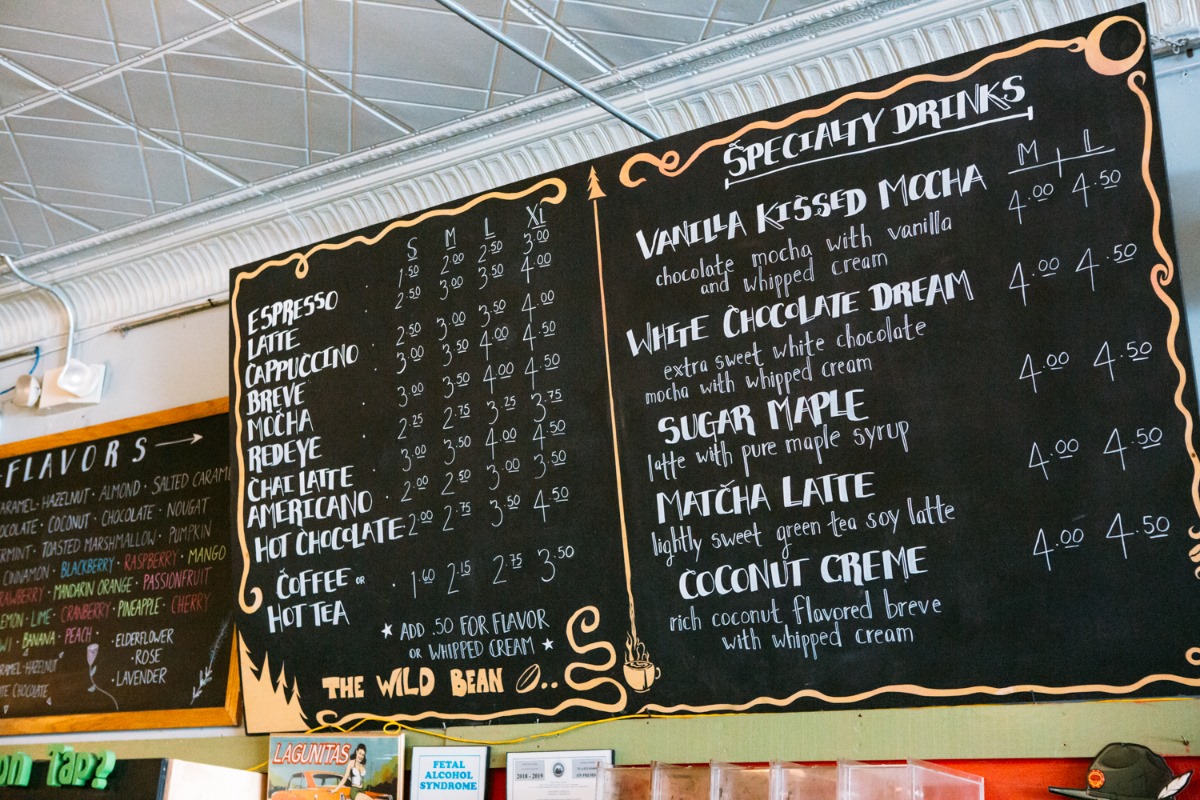 FLAVORS
CARAMEL-HAZELNUT · ALMOND · SALTED CARAMEL
CHOCOLATE · COCONUT · CHOCOLATE · NOUGAT
TOASTED MARSHMALLOW · PUMPKIN
CINNAMON · BLACKBERRY · RASPBERRY · MANGO
STRAWBERRY · MANDARIN ORANGE · PASSIONFRUIT
LEMON · LIME · CRANBERRY · PINEAPPLE · CHERRY
KIWI · BANANA · PEACH
· ELDERFLOWER
· ROSE
· LAVENDER
CARAMEL-HAZELNUT
WHITE CHOCOLATE
on Tap?
S M L XL
ESPRESSO · 1.50 2.00 2.50 3.00
LATTE 2.50 3.00 3.50 4.00
CAPPUCCINO · 2.50 3.00 3.50 4.00
BREVE · 3.00 3.50 4.00 4.50
MOCHA · 3.00 3.50 4.00 4.50
REDEYE · 2.25 2.75 3.25 3.75
CHAI LATTE · 3.00 3.50 4.00 4.50
AMERICANO · 2.00 2.50 3.00 3.50
HOT CHOCOLATE · 2.00 2.75 3.50 4.50
COFFEE OR · 1.60 2.15 2.75 3.50
HOT TEA
★ ADD .50 FOR FLAVOR
OR WHIPPED CREAM ★
THE WILD BEAN
SPECIALTY DRINKS
M L
VANILLA KISSED MOCHA 4.00 4.50
chocolate mocha with vanilla
and whipped cream
WHITE CHOCOLATE DREAM 4.00 4.50
extra sweet white chocolate
mocha with whipped cream
SUGAR MAPLE 4.00 4.50
latte with pure maple syrup
MATCHA LATTE 4.00 4.50
lightly sweet green tea soy latte
COCONUT CREME 4.00 4.50
rich coconut flavored breve
with whipped cream
LAGUNITAS
FETAL
ALCOHOL
SYNDROME
2018 - 2019